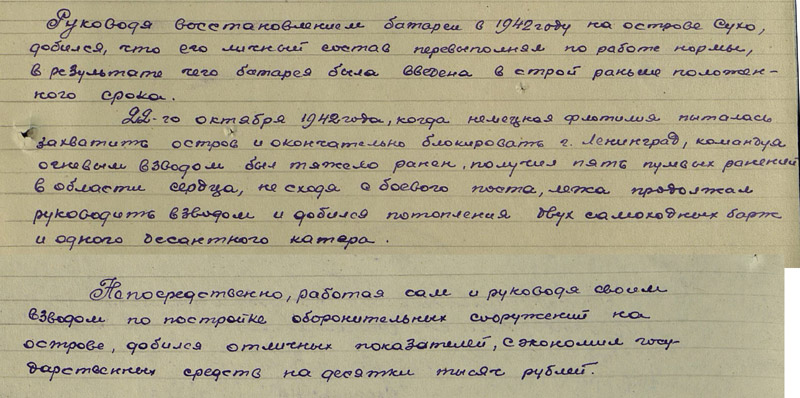 Руководя восстановлением батареи в 1942 году на острове Сухо,
добился, что его личный состав перевыполнял по работе нормы,
в результате чего батарея была введена в строй раньше положен-
ного срока.
22-го октября 1942 года, когда немецкая флотилия пыталась
захватить остров и окончательно блокировать г. Ленинград, командуя
огневым взводом был тяжело ранен, получил пять пулевых ранений
в области сердца, не сходя с боевого поста, лежа продолжал
руководить взводом и добился потопления двух самоходных барж
и одного десантного катера.
Непосредственно, работая сам и руководя своим
взводом по постройке оборонительных сооружений на
острове, добился отличных показателей, сэкономил госу-
дарственных средств на десятки тысяч рублей.